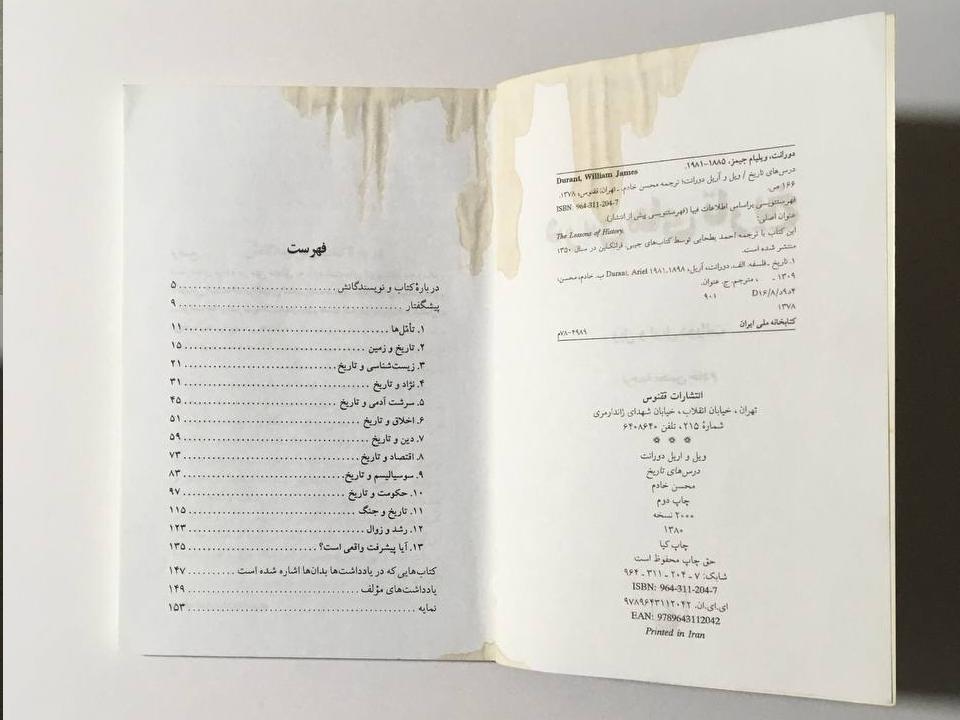 دورانت، ویلیام جیمز، ۱۸۸۵-۱۹۸۱.
Durant, William James
درس‌های تاریخ / ویل و آریل دورانت؛ ترجمه محسن خادم. ـ تهران: ققنوس، ۱۳۷۸.
۱۶۶ ص.
ISBN: 964-311-204-7
فهرستنویسی براساس اطلاعات فیپا (فهرستنویسی پیش از انتشار).
عنوان اصلی:
The Lessons of History.
این کتاب با ترجمه احمد بطحایی توسط کتاب‌های جیبی، فرانکلین در سال ۱۳۵۰
منتشر شده است.
۱. تاریخ ـ فلسفه. الف. دورانت، آریل، ۱۸۹۸ـ۱۹۸۱ Durant, Ariel ب. خادم، محسن،
۱۳۰۹ - ، مترجم. ج. عنوان.
۴د۹د/۸/D۱۶ ۹۰۱
۱۳۷۸
کتابخانه ملی ایران ۴۹۸۹-۷۸م
انتشارات ققنوس
تهران، خیابان انقلاب، خیابان شهدای ژاندارمری
شمارهٔ ۲۱۵، تلفن ۶۴۰۸۶۴۰
ویل و اریل دورانت
درس‌های تاریخ
محسن خادم
چاپ دوم
۲۰۰۰ نسخه
۱۳۸۰
چاپ کیا
حق چاپ محفوظ است
شابک: ۷ ـ ۲۰۴ ـ ۳۱۱ ـ ۹۶۴
ISBN: 964-311-204-7
ای.ای.ان. ۹۷۸۹۶۴۳۱۱۲۰۴۲
EAN: 9789643112042
Printed in Iran
فهرست
دربارهٔ کتاب و نویسندگانش ........ ۵
پیشگفتار ........ ۹
۱. تأمّل‌ها ........ ۱۱
۲. تاریخ و زمین ........ ۱۵
۳. زیست‌شناسی و تاریخ ........ ۲۱
۴. نژاد و تاریخ ........ ۳۱
۵. سرشت آدمی و تاریخ ........ ۴۵
۶. اخلاق و تاریخ ........ ۵۱
۷. دین و تاریخ ........ ۵۹
۸. اقتصاد و تاریخ ........ ۷۳
۹. سوسیالیسم و تاریخ ........ ۸۳
۱۰. حکومت و تاریخ ........ ۹۷
۱۱. تاریخ و جنگ ........ ۱۱۵
۱۲. رشد و زوال ........ ۱۲۳
۱۳. آیا پیشرفت واقعی است؟ ........ ۱۳۵
کتاب‌هایی که در یادداشت‌ها بدان‌ها اشاره شده است ........ ۱۴۷
یادداشت‌های مؤلف ........ ۱۴۹
نمایه ........ ۱۵۳